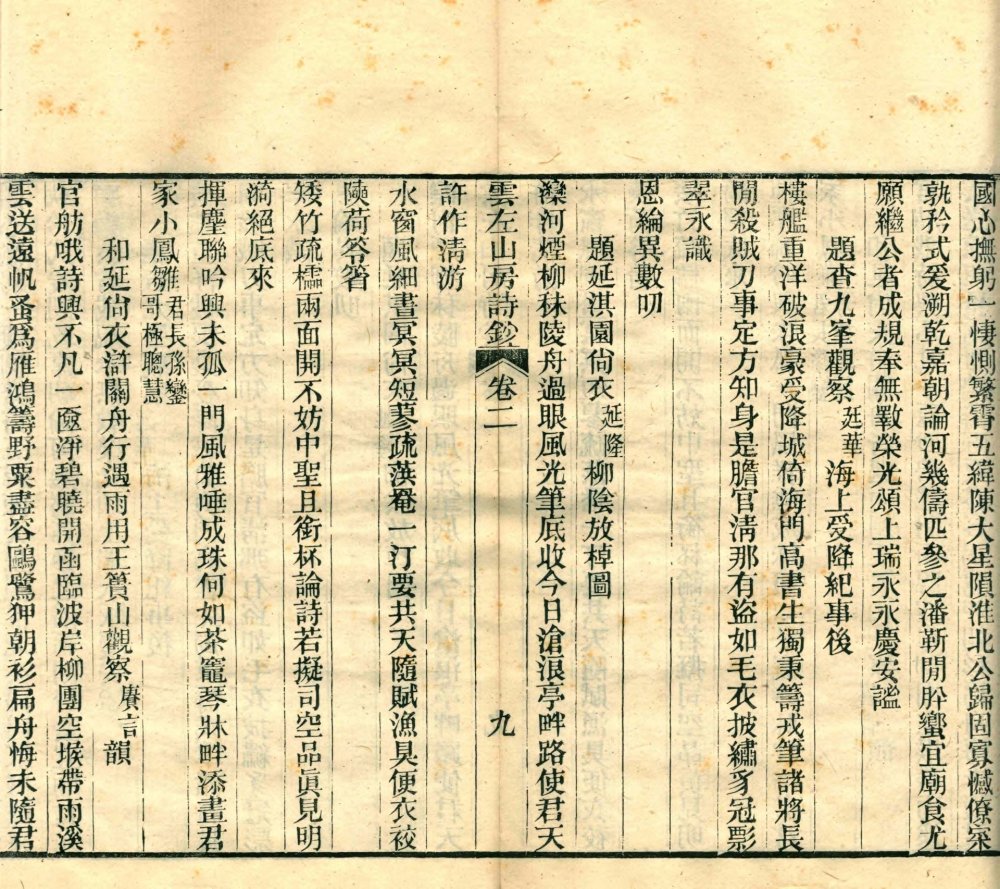 國心撫躬一悽惻繁霄五緯陳大星隕淮北公歸固寡憾僚寀
孰矜式爰溯乾嘉朝論河幾儔匹參之潘靳閒肸蠁宜廟食尤
願繼公者成規奉無斁榮光頌上瑞永永慶安謐
題查九峯觀察廷華海上受降紀事後
樓艦重洋破浪豪受降城倚海門高書生獨秉籌戎筆諸將長
閒殺賊刀事定方知身是膽官淸那有盜如毛衣披繡豸冠影
翠永識
恩綸異數叨
題延淇園尙衣延隆柳陰放棹圖
灤河煙柳秣陵舟過眼風光筆底收今日滄浪亭畔路使君天
雲左山房詩鈔 卷二 九
許作淸游
水窗風細晝冥冥短蓼疏蓂罨一汀要共天隨賦漁具便衣衱
陝荷笭箵
矮竹疏櫺兩面開不妨中聖且銜杯論詩若擬司空品眞見明
漪絕底來
揮麈聯吟興未孤一門風雅唾成珠何如茶竈琴牀畔添畫君
家小鳳雛君長孫鑾哥極聰慧
和延尙衣滸關舟行遇雨用王簣山觀察賡言韻
官舫哦詩興不凡一奩淨碧曉開函臨波岸柳團空堠帶雨溪
雲送遠帆蚤爲雁鴻籌野粟盡容鷗鷺狎朝衫扁舟悔未隨君